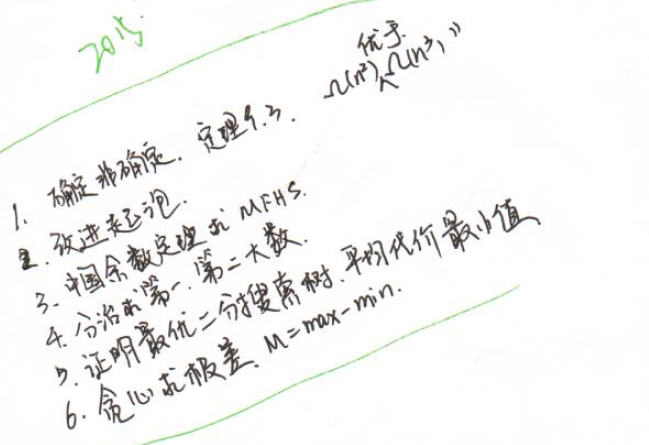 2015.
优于
Ω(n²) Ω(n³, ”
1. 确定 非确定. 定理9.3.
2. 改进起泡.
3. 中国余数定理求 MFHS.
4. 分治求第一.第二大数.
5. 证明最优二分搜索树.平均代价最小值
6. 贪心求极差. M=max-min.